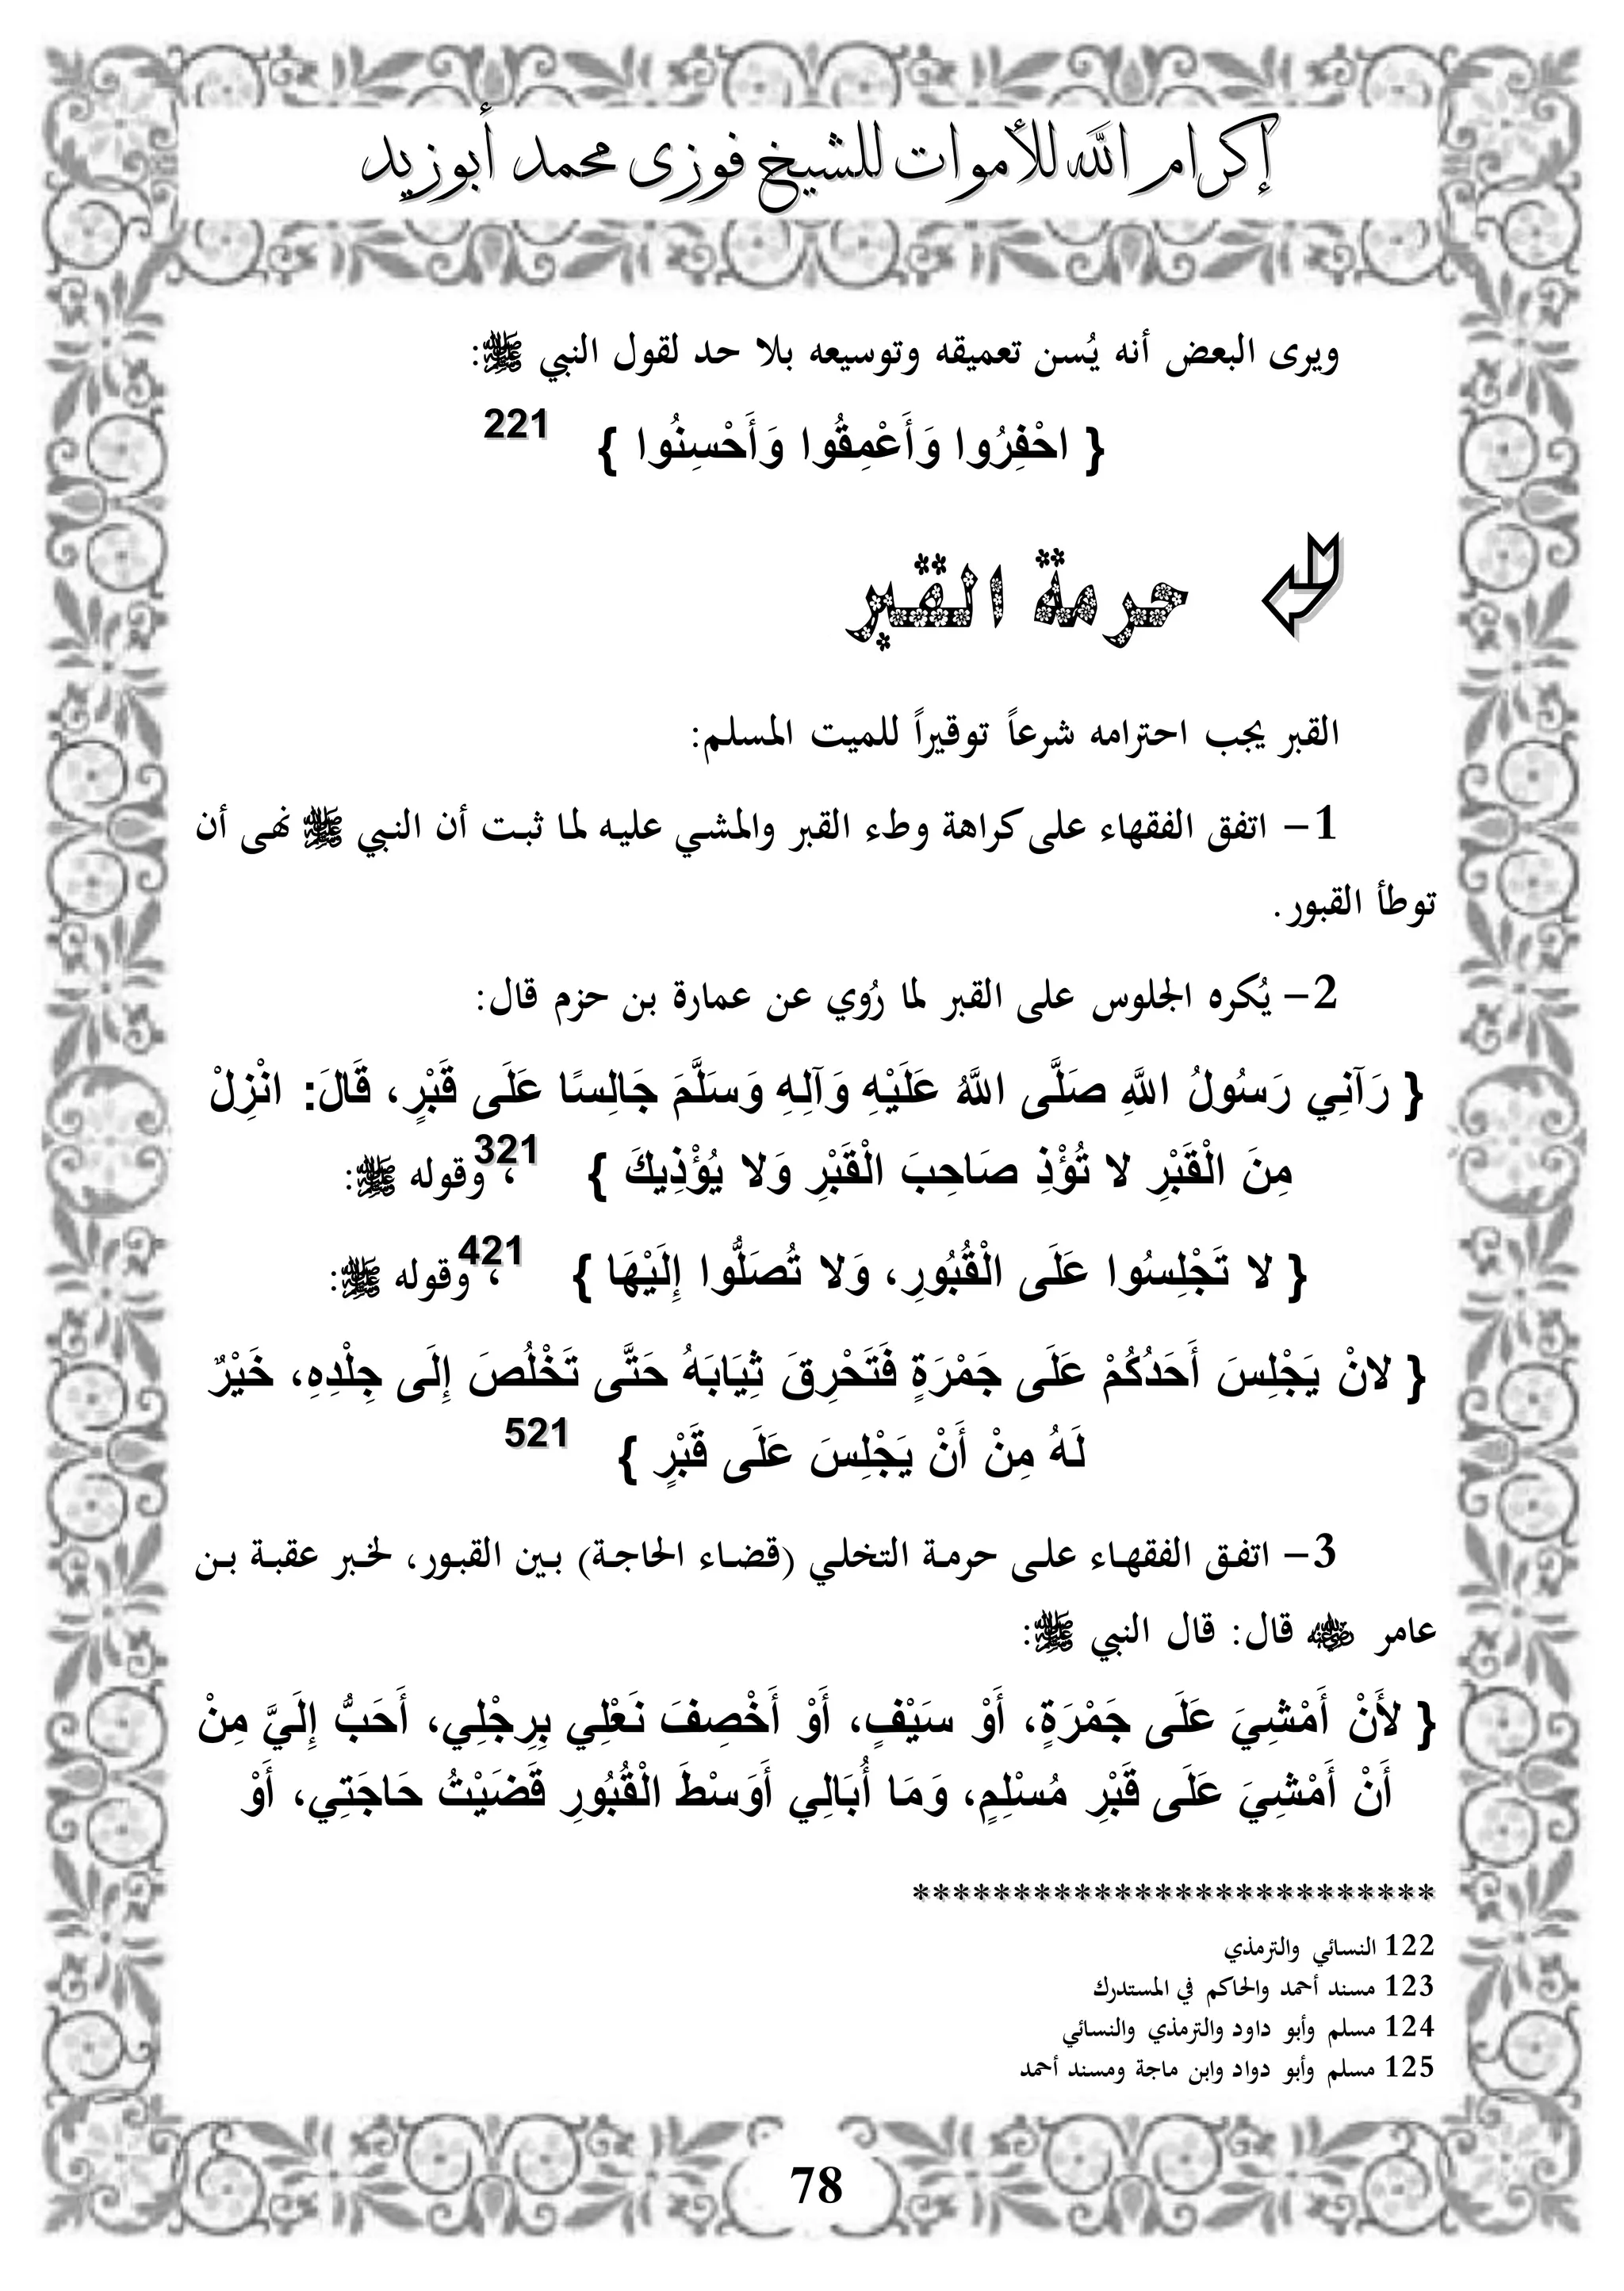 إكرام الله للأموات للشيخ فوزى محمد أبوزيد
ويرى البعض أنه يُسن تعميقه وتوسيعه بلا حد لقول النبي ﷺ:
{ احْفِرُوا وَأَعْمِقُوا وَأَحْسِنُوا } 221
حرمة القبر
القبر يجب احترامه شرعاً توقيراً للميت المسلم:
1- اتفق الفقهاء على كراهة وطء القبر والمشي عليه لما ثبت أن النبي ﷺ نهى أن
توطأ القبور.
2- يُكره الجلوس على القبر لما رُوي عن عمارة بن حزم قال:
{ رَآنِي رَسُولُ اللَّهِ صَلَّى اللَّهُ عَلَيْهِ وَآلِهِ وَسَلَّمَ جَالِسًا عَلَى قَبْرٍ، قَالَ: انْزِلْ
مِنَ الْقَبْرِ لا تُؤْذِ صَاحِبَ الْقَبْرِ وَلا يُؤْذِيكَ } 321، وقوله ﷺ:
{ لا تَجْلِسُوا عَلَى الْقُبُورِ، وَلا تُصَلُّوا إِلَيْهَا } 421، وقوله ﷺ:
{ لانْ يَجْلِسَ أَحَدُكُمْ عَلَى جَمْرَةٍ فَتَحْرِقَ ثِيَابَهُ حَتَّى تَخْلُصَ إِلَى جِلْدِهِ، خَيْرٌ
لَهُ مِنْ أَنْ يَجْلِسَ عَلَى قَبْرٍ } 521
3- اتفق الفقهاء على حرمة التخلي (قضاء الحاجة) بين القبور، لخبر عقبة بن
عامر ﵁ قال: قال النبي ﷺ:
{ لأَنْ أَمْشِيَ عَلَى جَمْرَةٍ، أَوْ سَيْفٍ، أَوْ أَخْصِفَ نَعْلِي بِرِجْلِي، أَحَبُّ إِلَيَّ مِنْ
أَنْ أَمْشِيَ عَلَى قَبْرِ مُسْلِمٍ، وَمَا أُبَالِي أَوَسْطَ الْقُبُورِ قَضَيْتُ حَاجَتِي، أَوْ
**************************
122 النسائي والترمذي
123 مسند أحمد والحاكم في المستدرك
124 مسلم وأبو داود والترمذي والنسائي
125 مسلم وأبو دواد وابن ماجة ومسند أحمد
78